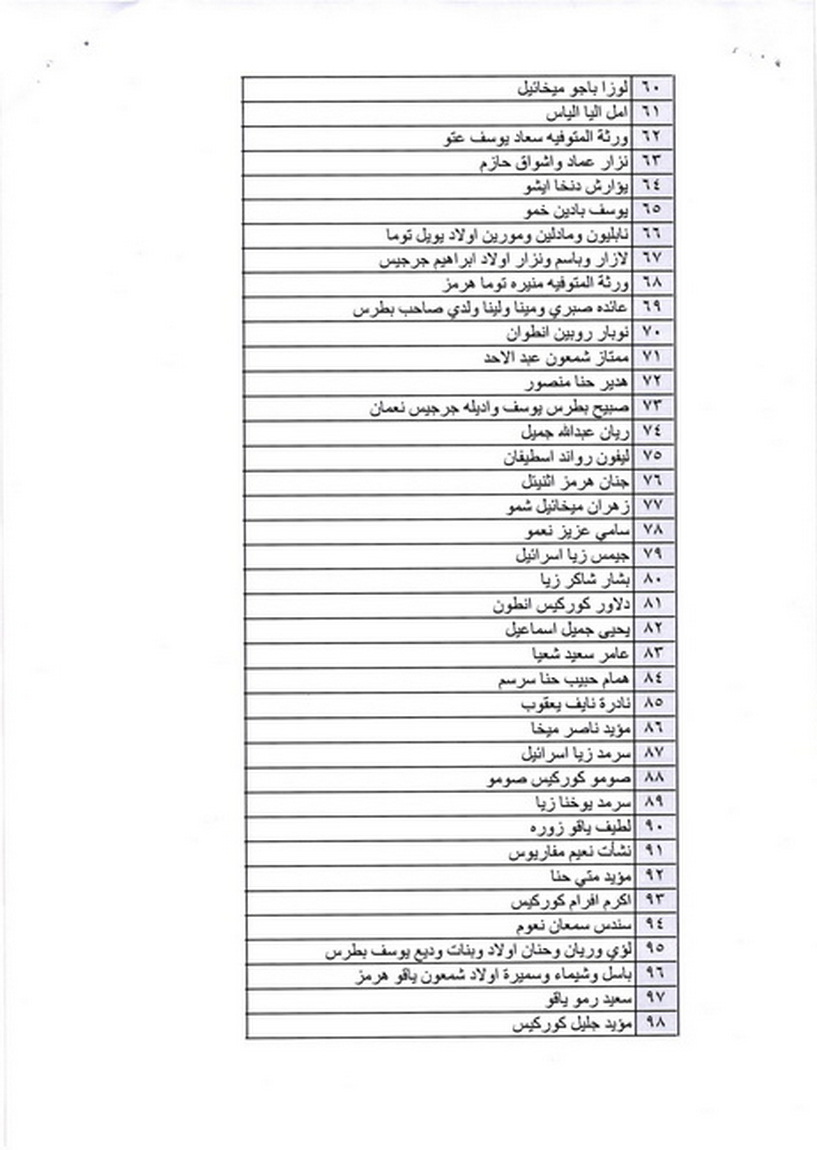 ٦٠ لوزا باجو ميخائيل
٦١ امل اليا الياس
٦٢ ورثة المتوفيه سعاد يوسف عتو
٦٣ نزار عماد واشواق حازم
٦٤ يؤارش دنخا ايشو
٦٥ يوسف بادين خمو
٦٦ نابليون ومادلين ومورين اولاد يويل توما
٦٧ لازار وباسم ونزار اولاد ابراهيم جرجيس
٦٨ ورثة المتوفيه منيره توما هرمز
٦٩ عائده صبري ومينا ولينا ولدي صاحب بطرس
٧٠ نوبار روبين انطوان
٧١ ممتاز شمعون عبد الاحد
٧٢ هدير حنا منصور
٧٣ صبيح بطرس يوسف واديله جرجيس نعمان
٧٤ ريان عبدالله جميل
٧٥ ليفون رواند اسطيفان
٧٦ جنان هرمز اثنيل
٧٧ زهران ميخائيل شمو
٧٨ سامي عزيز نعمو
٧٩ جيمس زيا اسرائيل
٨٠ بشار شاكر زيا
٨١ دلاور كوركيس انطون
٨٢ يحيى جميل اسماعيل
٨٣ عامر سعيد شعيا
٨٤ همام حبيب حنا سرسم
٨٥ نادرة نايف يعقوب
٨٦ مؤيد ناصر ميخا
٨٧ سرمد زيا اسرائيل
٨٨ صومو كوركيس صومو
٨٩ سرمد يوخنا زيا
٩٠ لطيف ياقو زوره
٩١ نشأت نعيم مفاريوس
٩٢ مؤيد متي حنا
٩٣ اكرم افرام كوركيس
٩٤ سندس سمعان نعوم
٩٥ لؤي وريان وحنان اولاد وبنات وديع يوسف بطرس
٩٦ باسل وشيماء وسميرة اولاد شمعون ياقو هرمز
٩٧ سعيد رمو ياقو
٩٨ مؤيد جليل كوركيس